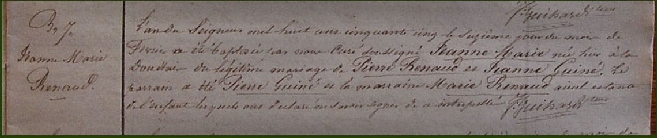 Jeanne Marie
Renaud.
L'an du Seigneur mil huit cent cinquante cinq le sixième jour du mois de
Février a été baptisée par nous Curé soussigné Jeanne Marie née hier à la
du légitime mariage de Pierre Renaud et Jeanne Guiné. Le
parrain a été Pierre Guiné et la marraine Marie Renaud aïeul et tante
de l'enfant lesquels ont déclaré ne savoir signer de ce interpellés J. Guihard